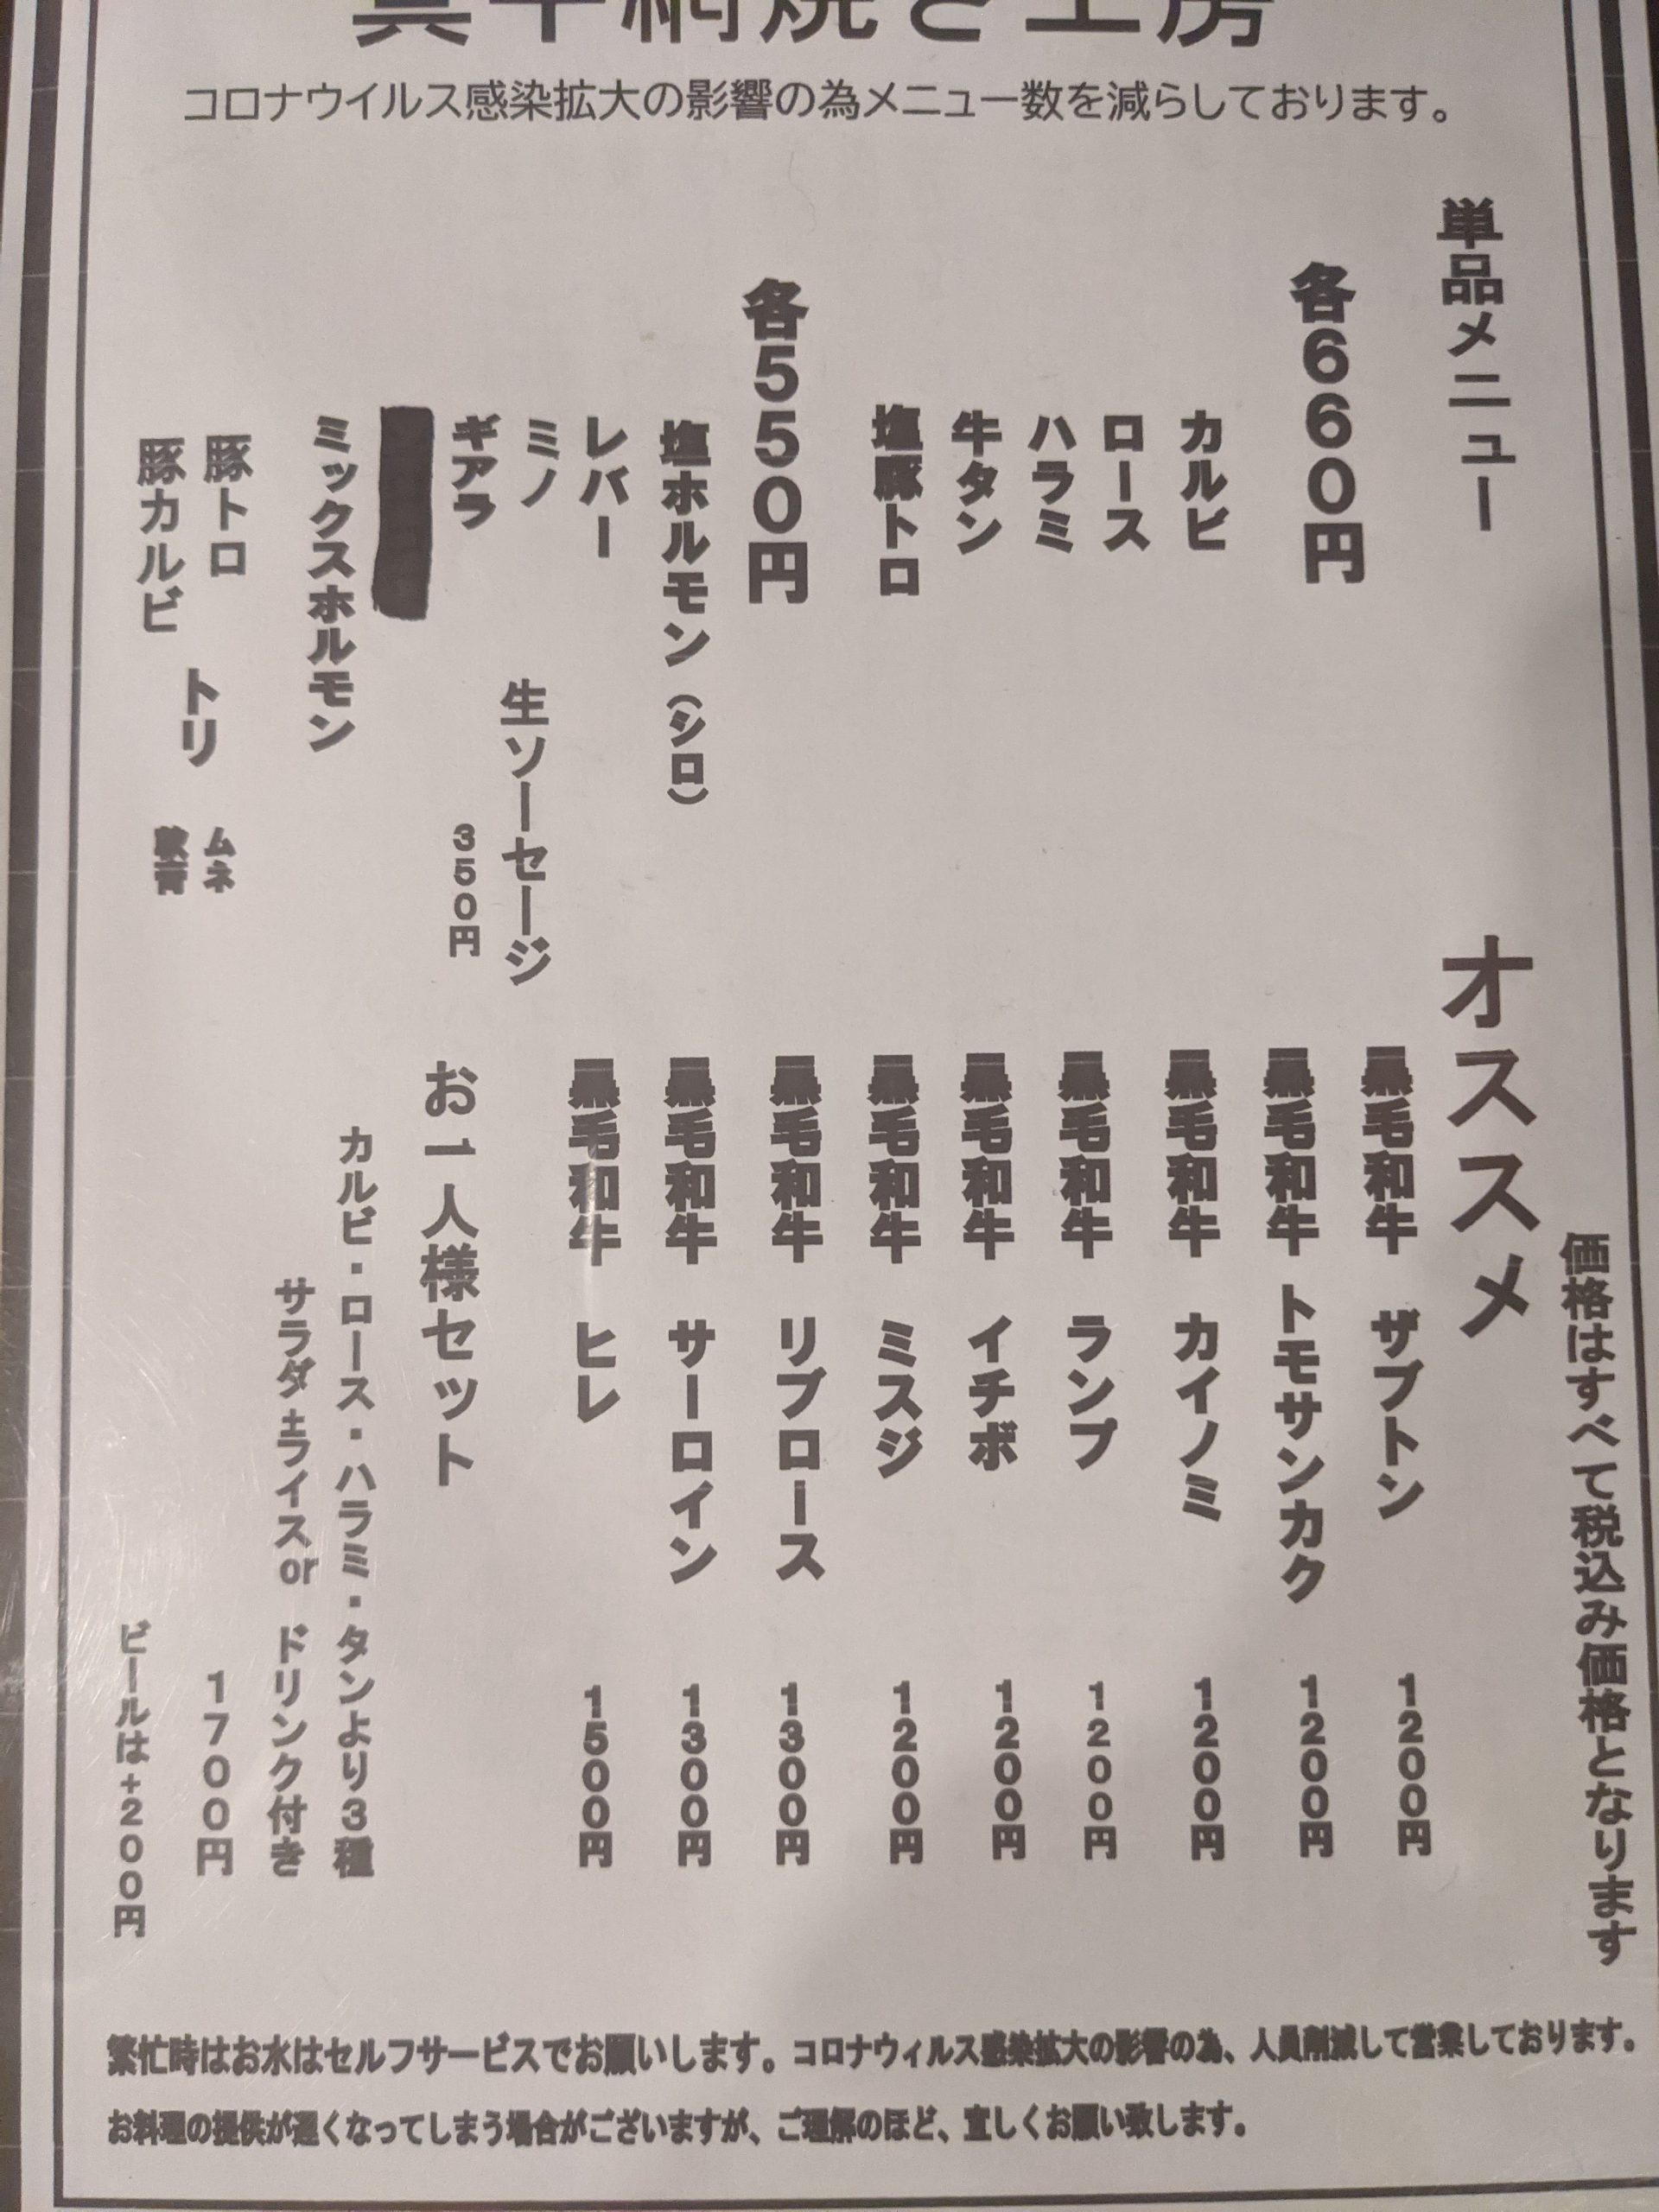 コロナウイルス感染拡大の影響の為メニュー数を減らしております。
単品メニュー
各660円
カルビ
ロース
ハラミ
牛タン
塩豚トロ
各550円
塩ホルモン(シロ)
レバー
ミノ
ギアラ
ミックスホルモン
豚トロ
豚カルビ
トリ
ムネ
軟骨
生ソーセージ
350円
価格はすべて税込み価格となります
オススメ
黒毛和牛 ザブトン 1200円
黒毛和牛 トモサンカク 1200円
黒毛和牛 カイノミ 1200円
黒毛和牛 ランプ 1200円
黒毛和牛 イチボ 1200円
黒毛和牛 ミスジ 1200円
黒毛和牛 リブロース 1300円
黒毛和牛 サーロイン 1300円
黒毛和牛 ヒレ 1500円
お一人様セット
カルビ・ロース・ハラミ・タンより3種
サラダ±ライスor ドリンク付き
1700円
ビールは+200円
繁忙時はお水はセルフサービスでお願いします。コロナウィルス感染拡大の影響の為、人員削減して営業しております。
お料理の提供が遅くなってしまう場合がございますが、ご理解のほど、宜しくお願い致します。